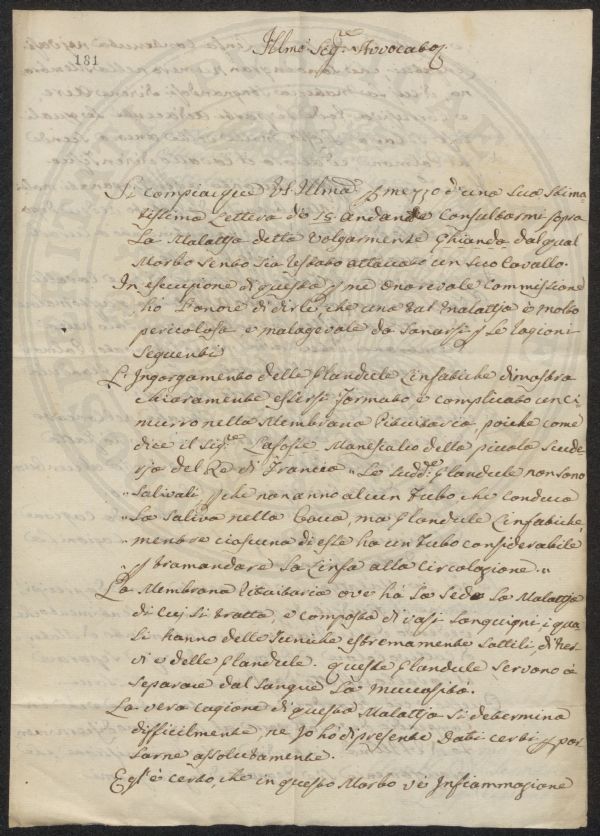 Illmo Sigr. Avvocato
181
Si compiacque VS Illma p mezzo d'una sua stima-
tissima Lettera de 15 andante Consultarmi sopra
La Malattja detta Volgarmente Ghianda dal qual
Morbo sento sia restato attaccato un suo Cavallo.
In esecuzione di questa p me onorevale Commissione
ho L'onore di dirle, che una tal malattja è molto
pericolosa e malagevale da sanarsi p Le ragioni
Seguenti
L'Ingorgamento delle Glandule Linfatiche dimostra
chiaramente essersi formato, e complicato un ci-
murro nella Membrana Pituitaria, poiche come
dice il Sigre. Lafosse Manescalco della piccola Scude-
rja del Re di Francia „ Le sudde. Glandule non sono
„ Salivali p che non anno alcun Tubo che conduca
„ La Saliva nella bocca, ma Glandule Linfatiche,
mentre ciascuna di esse ha un Tubo considerabile
„ p tramandare La Linfa alla Circolazione. „
La Membrana Pituitaria ove ha La sede La Malattja
di cuj si tratta, e composta di vasi sanguigni, i qua-
li hanno delle Tuniche estremamente sottili, di Ner-
vi e delle Glandule. queste Glandule servono à
separare dal sangue La muccosità.
La vera cagione di questa Malattja si determina
difficilmente, ne Jo hò di presente Dati certi p por-
tarne assolutamente.
Egl'è certo, che in questo Morbo v'è Infiammazione